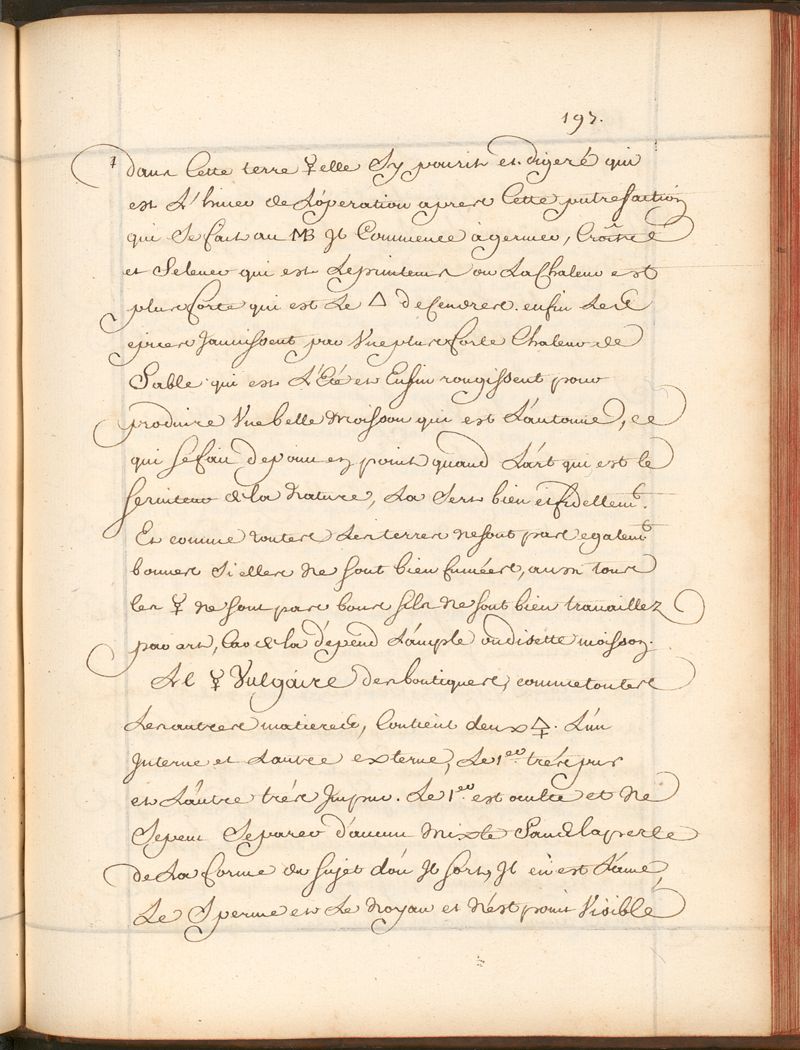 197.
dans Cette terre ☿elle Sy pourit et digeré qui
est L'hiver de L'óperation apres Cette putrefaction
qui Se fait au MB Jl Commence à germer, Croître
et Selever qui est Leprintems ou LaChaleur est
plus forte qui est Le △ deCendres. enfin Les
epies Jaunissent par Vneplus forte Chaleur de
Sable qui est L'Eté et Enfin rougissent pour
produire Vne belle Moisson qui est L'autonne, ce
qui Sefait depoint en point quand L'art qui est le
Serviteur de la Nature, La Sert bien et fidellemt.
Et comme toutes Les terres nesont pas egalemt
bonnes Si elles Ne sont bien fumées, aussi tous
les ☿ ne sont pas bons sils ne sont bien travaillez
par art, Car de la dépend L'ample oudisette moisson.
Le ☿ Vulgaire des boutiques, comme toutes
Les autres matieres, Contient deux 🜍. L'un
Jnterne et L'autre externe, Le 1er trés pur
et L'autre trés Jmpur. Le 1er est oculte et Ne
Sepeut Separer d'aucun Mixte Sans laperte
de La forme du Sujet d'ou Jl sort, Jl en est L'ame,
Le Sperme et Le Noyau et N'est point Visible